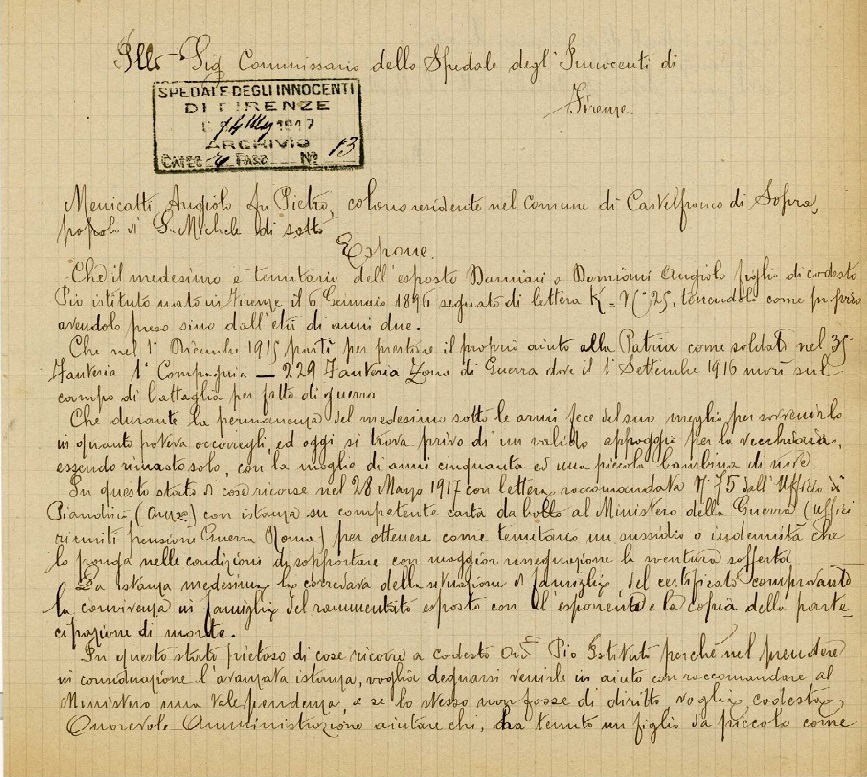 Illo Sig Commissario dello Spedale degl' Innocenti di
Firenze.
SPEDALE DEGLI INNOCENTI
DI FIRENZE
1917
ARCHIVIO
CATEG FASC No 13
Menicatti Angiolo fu Pietro, colono residente nel comune di Castelfranco di Sopra,
popolo di S. Michele di sotto
Espone.
Che il medesimo è tenutario dell'esposto Damiani o Damiani Angiolo figlio di codesto
Pio istituto nato in Firenze il 6 Gennaio 1896 segnato di lettera K = N° 25, tenendolo come proprio
avendolo preso sino dall'età di anni due.
Che nel 1° Dicembre 1915 partì per prestare il proprio aiuto alla Patria come soldato nel 35
Fanteria 1° Compagnia — 229 Fanteria Zona di Guerra dove il 1° Settembre 1916 morì sul
campo di battaglia per fatto di guerra
Che durante la permanenza del medesimo sotto le armi fece del suo meglio per sovvenirlo
in quanto poteva occorregli, ed oggi si trova privo di un valido appoggio per la vecchiaia,
essendo rimasto solo, con la moglie di anni cinquanta ed una piccola bambina di
In questo stato di cose ricorse nel 28 Marzo 1917 con lettera raccomandata N° 75 dall'Ufficio di
Piandiscò (Arezzo) con istanza su competente carta da bollo al Ministero della Guerra (uffici
riuniti pensioni Guerra Roma) per ottenere come tenutario un sussidio o indennità che
lo ponga nelle condizioni di sopportare con maggior rassegnazione la sventura sofferta
La istanza medesima la corredava della situazione di famiglia, del certificato comprovante
la convivenza in famiglia del rammentato esposto con l'esponente e la copia della parte-
cipazione di morte.
In questo stato pietoso di cose ricorre a codesto Pio Istituto perchè nel prendere
in considerazione l'avanzata istanza, voglia degnarsi venirle in aiuto con raccomandare al
Ministero una tale pendenza, e se lo stesso non fosse di diritto, voglia codesta
Onorevole Amministrazione aiutare chi, ha tenuto un figlio da piccolo come